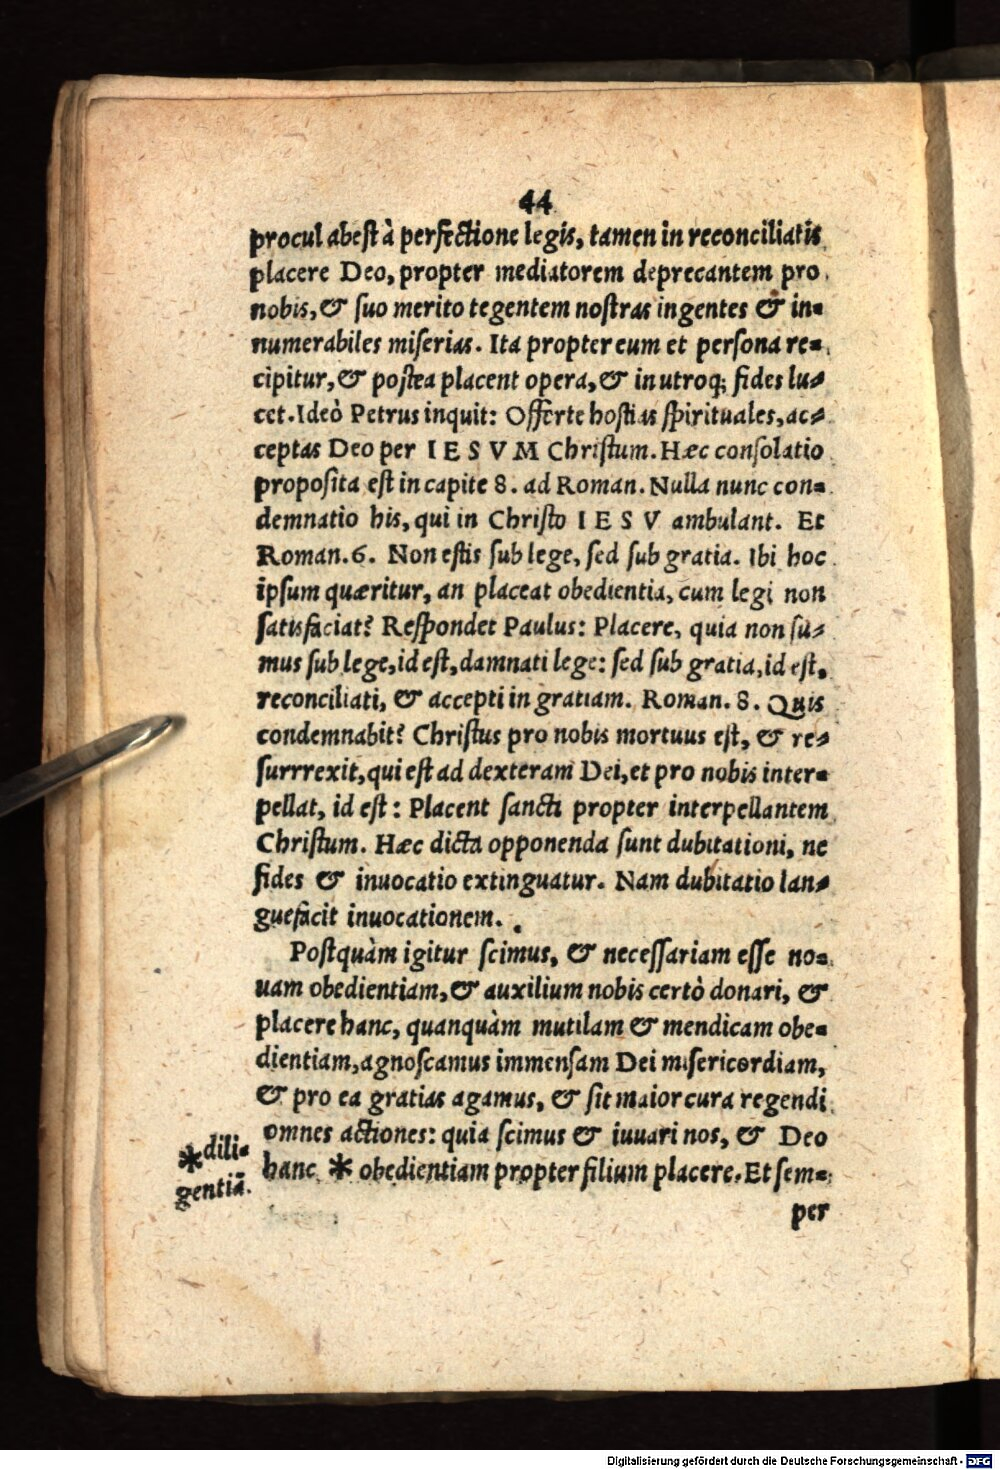 44
procul abest à perfectione legis, tamen in reconciliatis
placere Deo, propter mediatorem deprecantem pro
nobis, & suo merito tegentem nostras ingentes & in-
numerabiles miserias. Ita propter eum et persona re-
cipitur, & postea placent opera, & in utroq; fides lu-
cet. Ideò Petrus inquit: Offerte hostias spirituales, ac-
ceptas Deo per IESVM Christum. Hæc consolatio
proposita est in capite 8. ad Roman. Nulla nunc con-
demnatio his, qui in Christo IESV ambulant. Et
Roman. 6. Non estis sub lege, sed sub gratia. Ibi hoc
ipsum quæritur, an placeat obedientia, cum legi non
satisfaciat? Respondet Paulus: Placere, quia non su-
mus sub lege, id est, damnati lege: sed sub gratia, id est,
reconciliati, & accepti in gratiam. Roman. 8. Quis
condemnabit? Christus pro nobis mortuus est, & re-
surrrexit, qui est ad dexteram Dei, et pro nobis inter-
pellat, id est: Placent sancti propter interpellantem
Christum. Hæc dicta opponenda sunt dubitationi, ne
fides & inuocatio extinguatur. Nam dubitatio lan-
guefacit inuocationem.
Postquàm igitur scimus, & necessariam esse no-
uam obedientiam, & auxilium nobis certò donari, &
placere hanc, quanquàm mutilam & mendicam obe-
dientiam, agnoscamus immensam Dei misericordiam,
& pro ea gratias agamus, & sit maior cura regendi
omnes actiones: quia scimus & iuuari nos, & Deo
hanc * obedientiam propter filium placere. Et sem-
*dili-
gentiā.
per
Digitalisierung gefördert durch die Deutsche Forschungsgemeinschaft - DFG